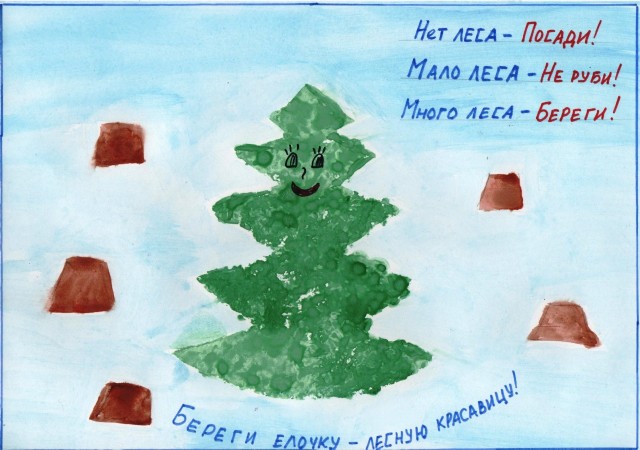 Нет леса - Посади!
Мало леса - Не руби!
Много леса - Береги!
Береги елочку - лесную красавицу!